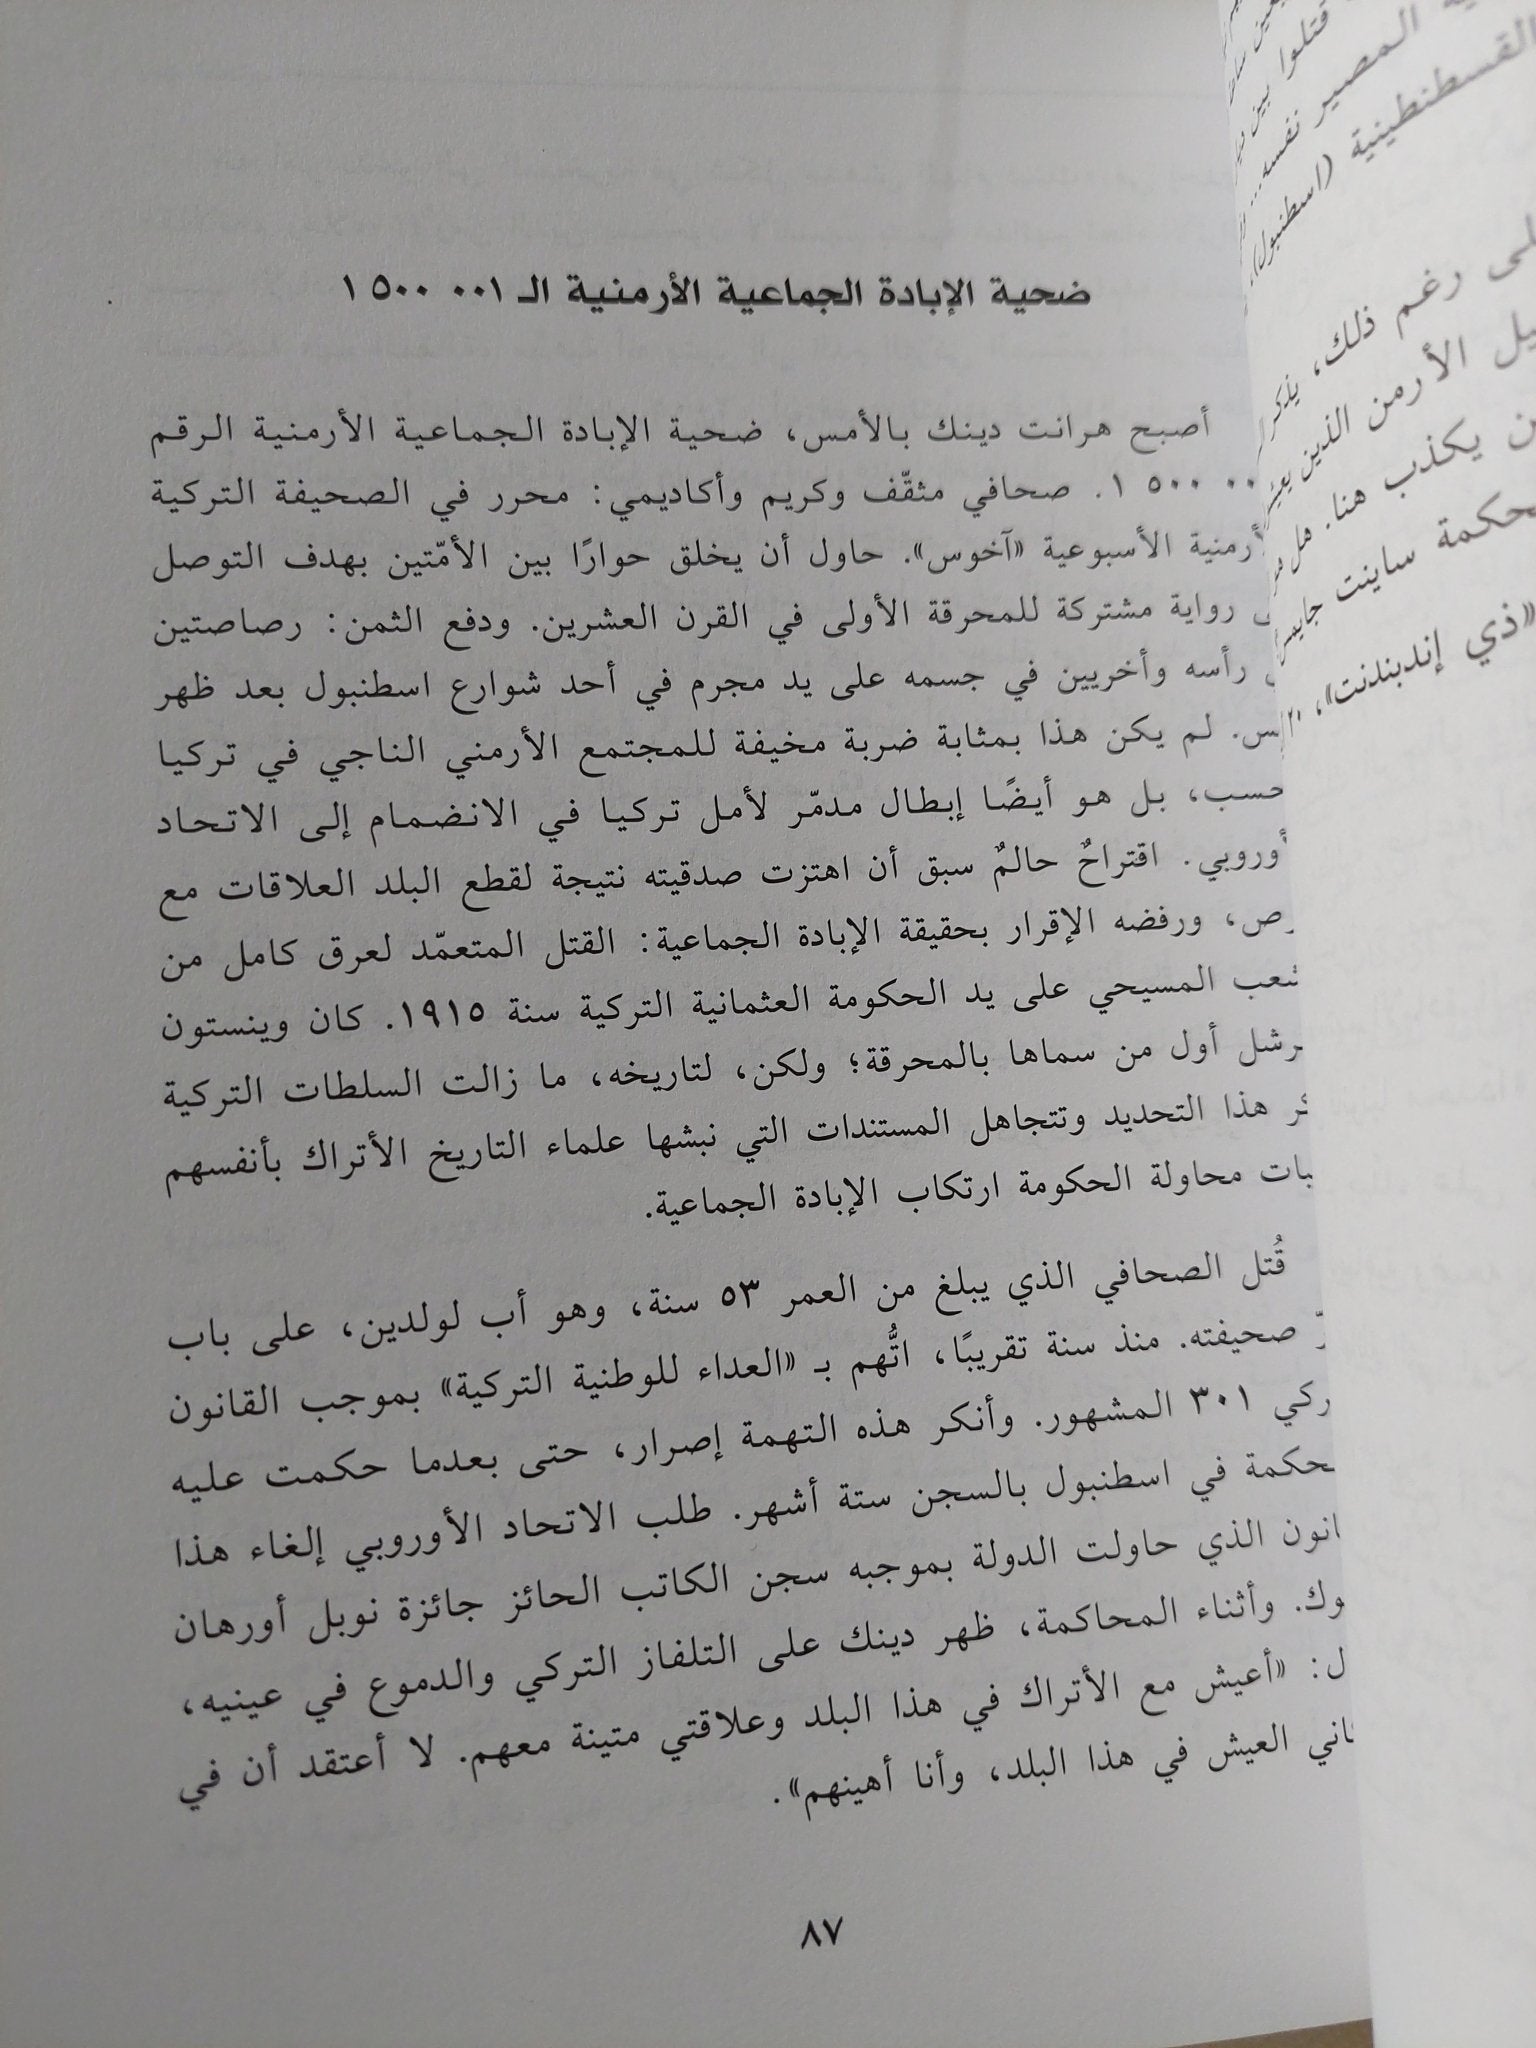 ضحية الإبادة الجماعية الأرمنية الـ ٠٠١ ٥٠٠ ١
أصبح هرانت دينك بالأمس، ضحية الإبادة الجماعية الأرمنية الرقم
٥٠٠ ١. صحافي مثقّف وكريم وأكاديمي: محرر في الصحيفة التركية
الأسبوعية «آخوس». حاول أن يخلق حوارًا بين الأمّتين بهدف التوصل
رواية مشتركة للمحرقة الأولى في القرن العشرين. ودفع الثمن: رصاصتين
رأسه وأخريين في جسمه على يد مجرم في أحد شوارع اسطنبول بعد ظهر
لم يكن هذا بمثابة ضربة مخيفة للمجتمع الأرمني الناجي في تركيا
حسب، بل هو أيضًا إبطال مدمّر لأمل تركيا في الانضمام إلى الاتحاد
اقتراحٌ حالمٌ سبق أن اهتزت صدقيته نتيجة لقطع البلد العلاقات مع
ورفضه الإقرار بحقيقة الإبادة الجماعية: القتل المتعمّد لعرق كامل من
المسيحي على يد الحكومة العثمانية التركية سنة ١٩١٥. كان وينستون
أول من سماها بالمحرقة؛ ولكن، لتاريخه، ما زالت السلطات التركية
هذا التحديد وتتجاهل المستندات التي نبشها علماء التاريخ الأتراك بأنفسهم
محاولة الحكومة ارتكاب الإبادة الجماعية.
قُتل الصحافي الذي يبلغ من العمر ٥٣ سنة، وهو أب لولدين، على باب
صحيفته. منذ سنة تقريبًا، اتُّهم بـ «العداء للوطنية التركية» بموجب القانون
٣٠١ المشهور. وأنكر هذه التهمة إصرار، حتى بعدما حكمت عليه
في اسطنبول بالسجن ستة أشهر. طلب الاتحاد الأوروبي إلغاء هذا
الذي حاولت الدولة بموجبه سجن الكاتب الحائز جائزة نوبل أورهان
وأثناء المحاكمة، ظهر دينك على التلفاز التركي والدموع في عينيه،
«أعيش مع الأتراك في هذا البلد وعلاقتي متينة معهم. لا أعتقد أن في
العيش في هذا البلد، وأنا أهينهم».
٨٧
قتلوا بين
المصير نفسه...
القسطنطينية (اسطنبول).
رغم ذلك،
الأرمن الذين
يكذب هنا. هل
ساينت
«ذي إندبندنت»،